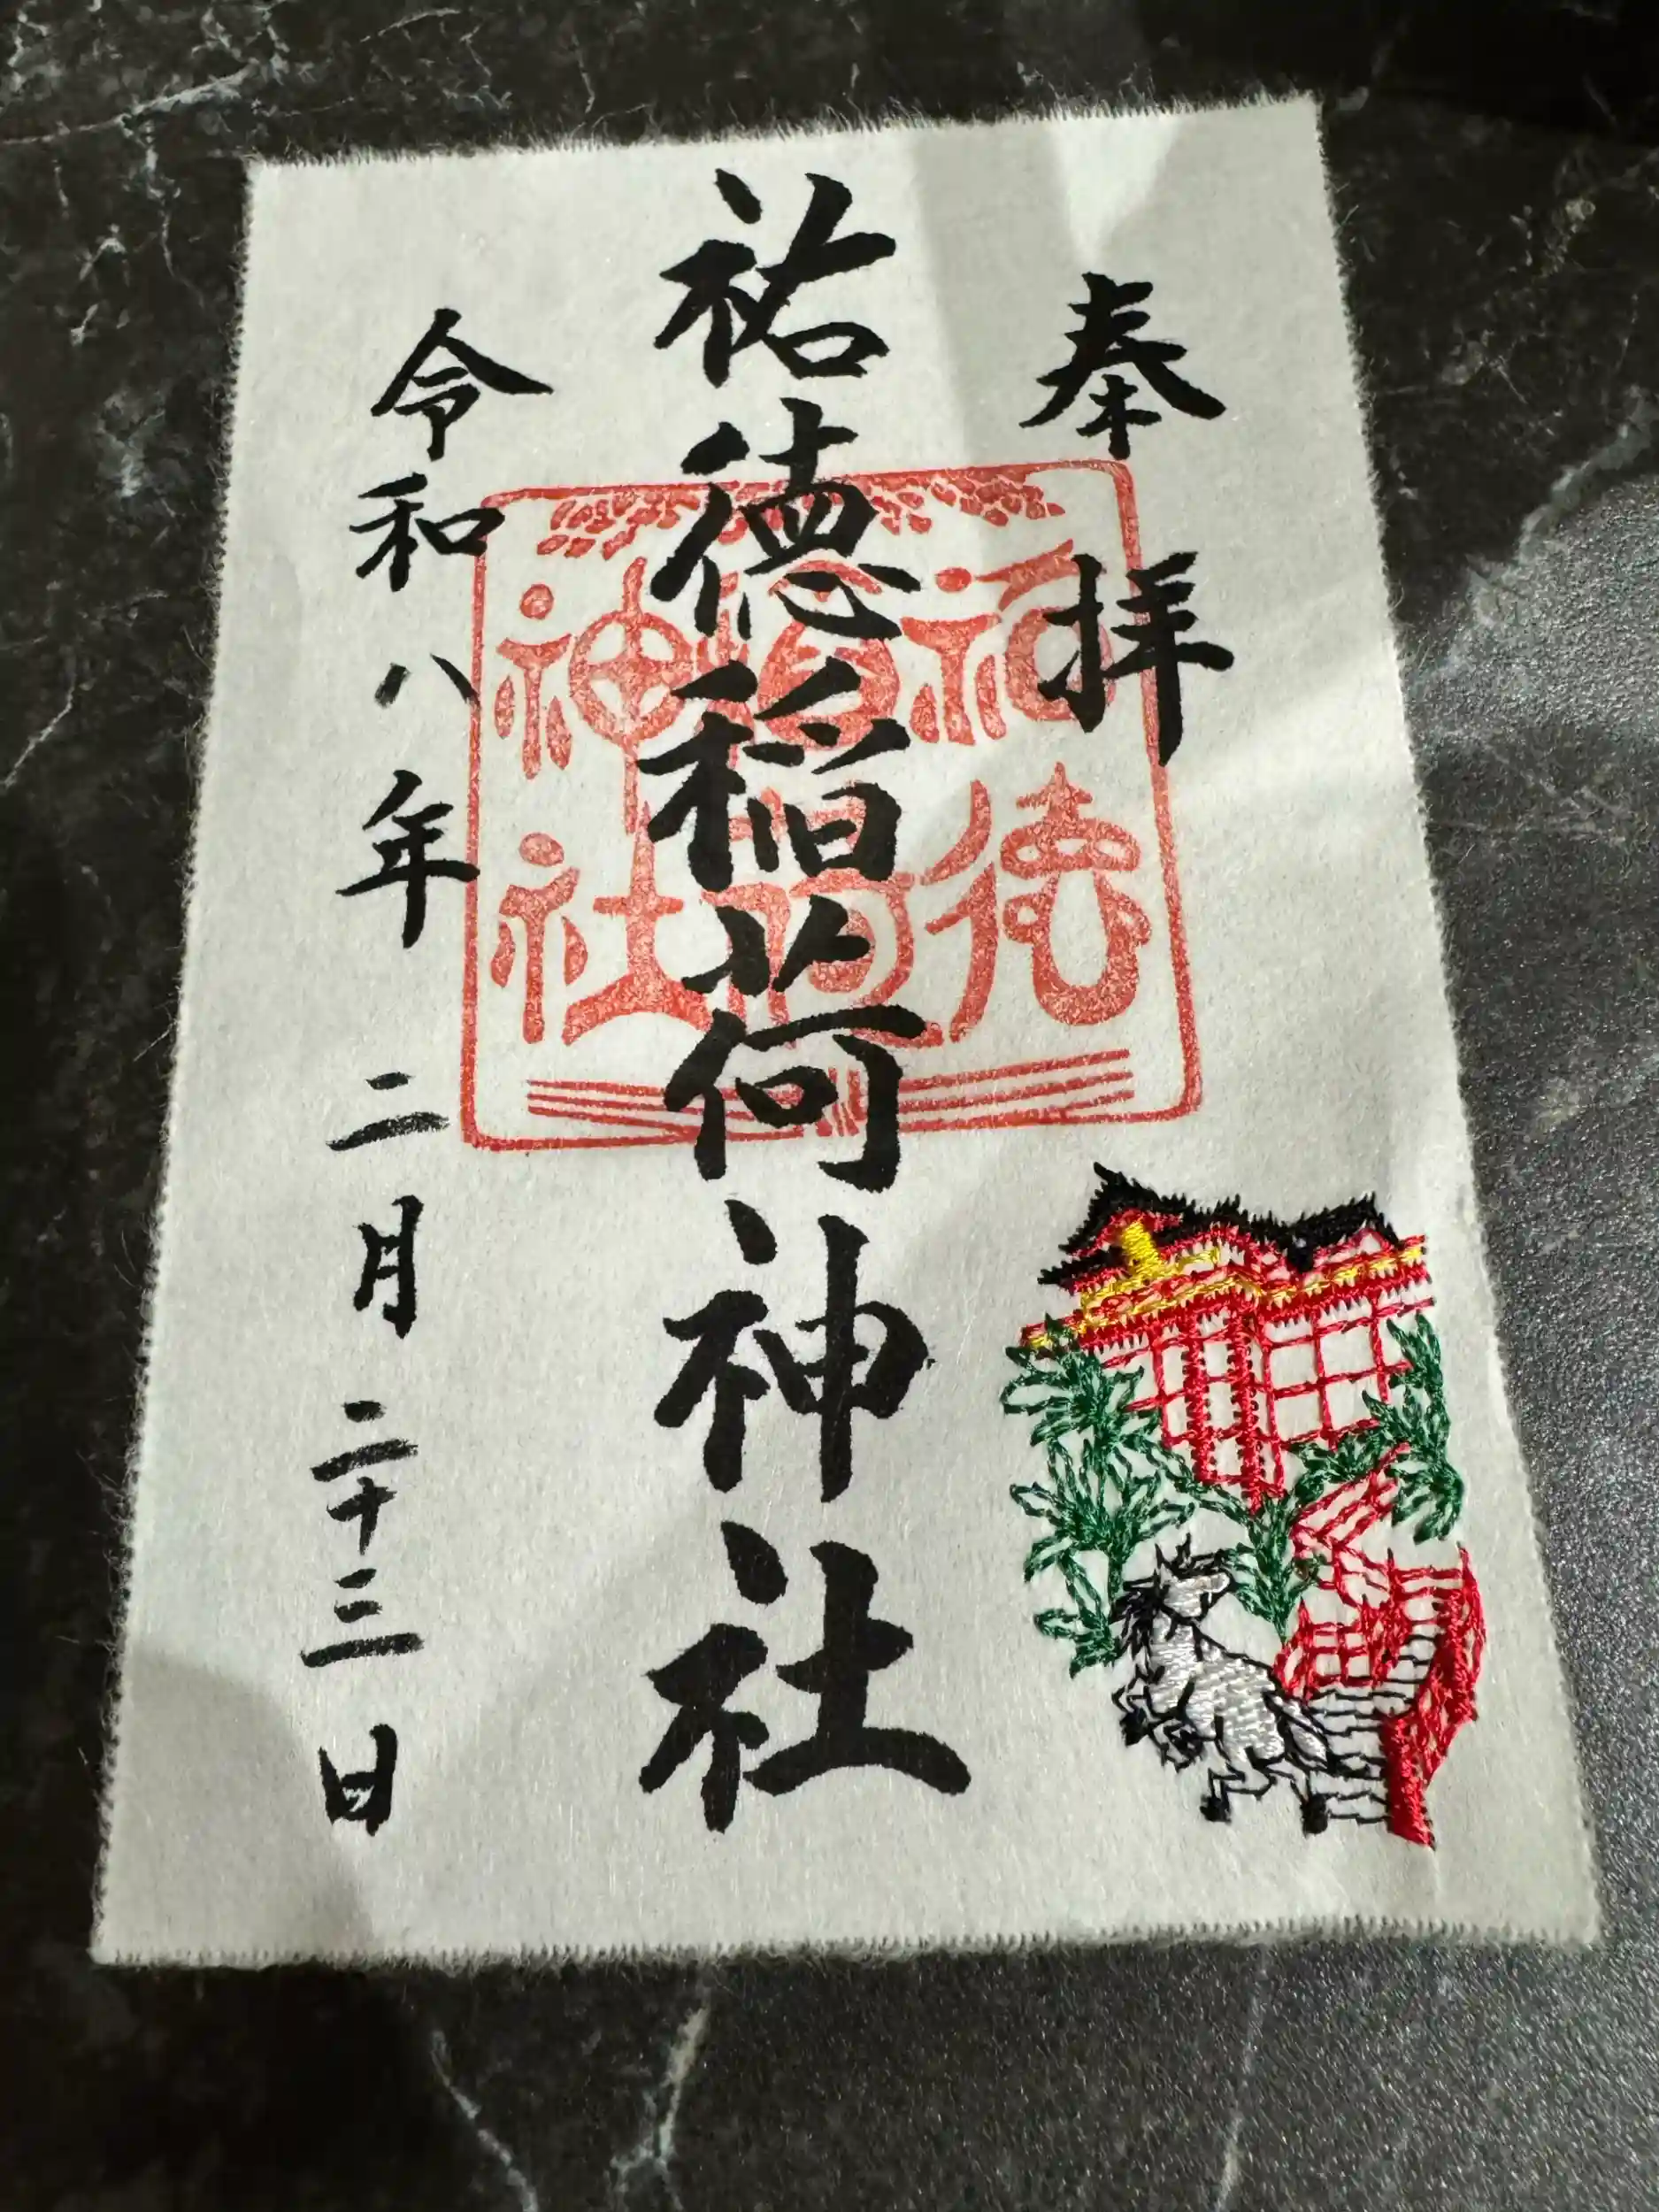 奉拝
祐徳稲荷神社
祐徳
稲荷
神社
令和八年二月二十三日